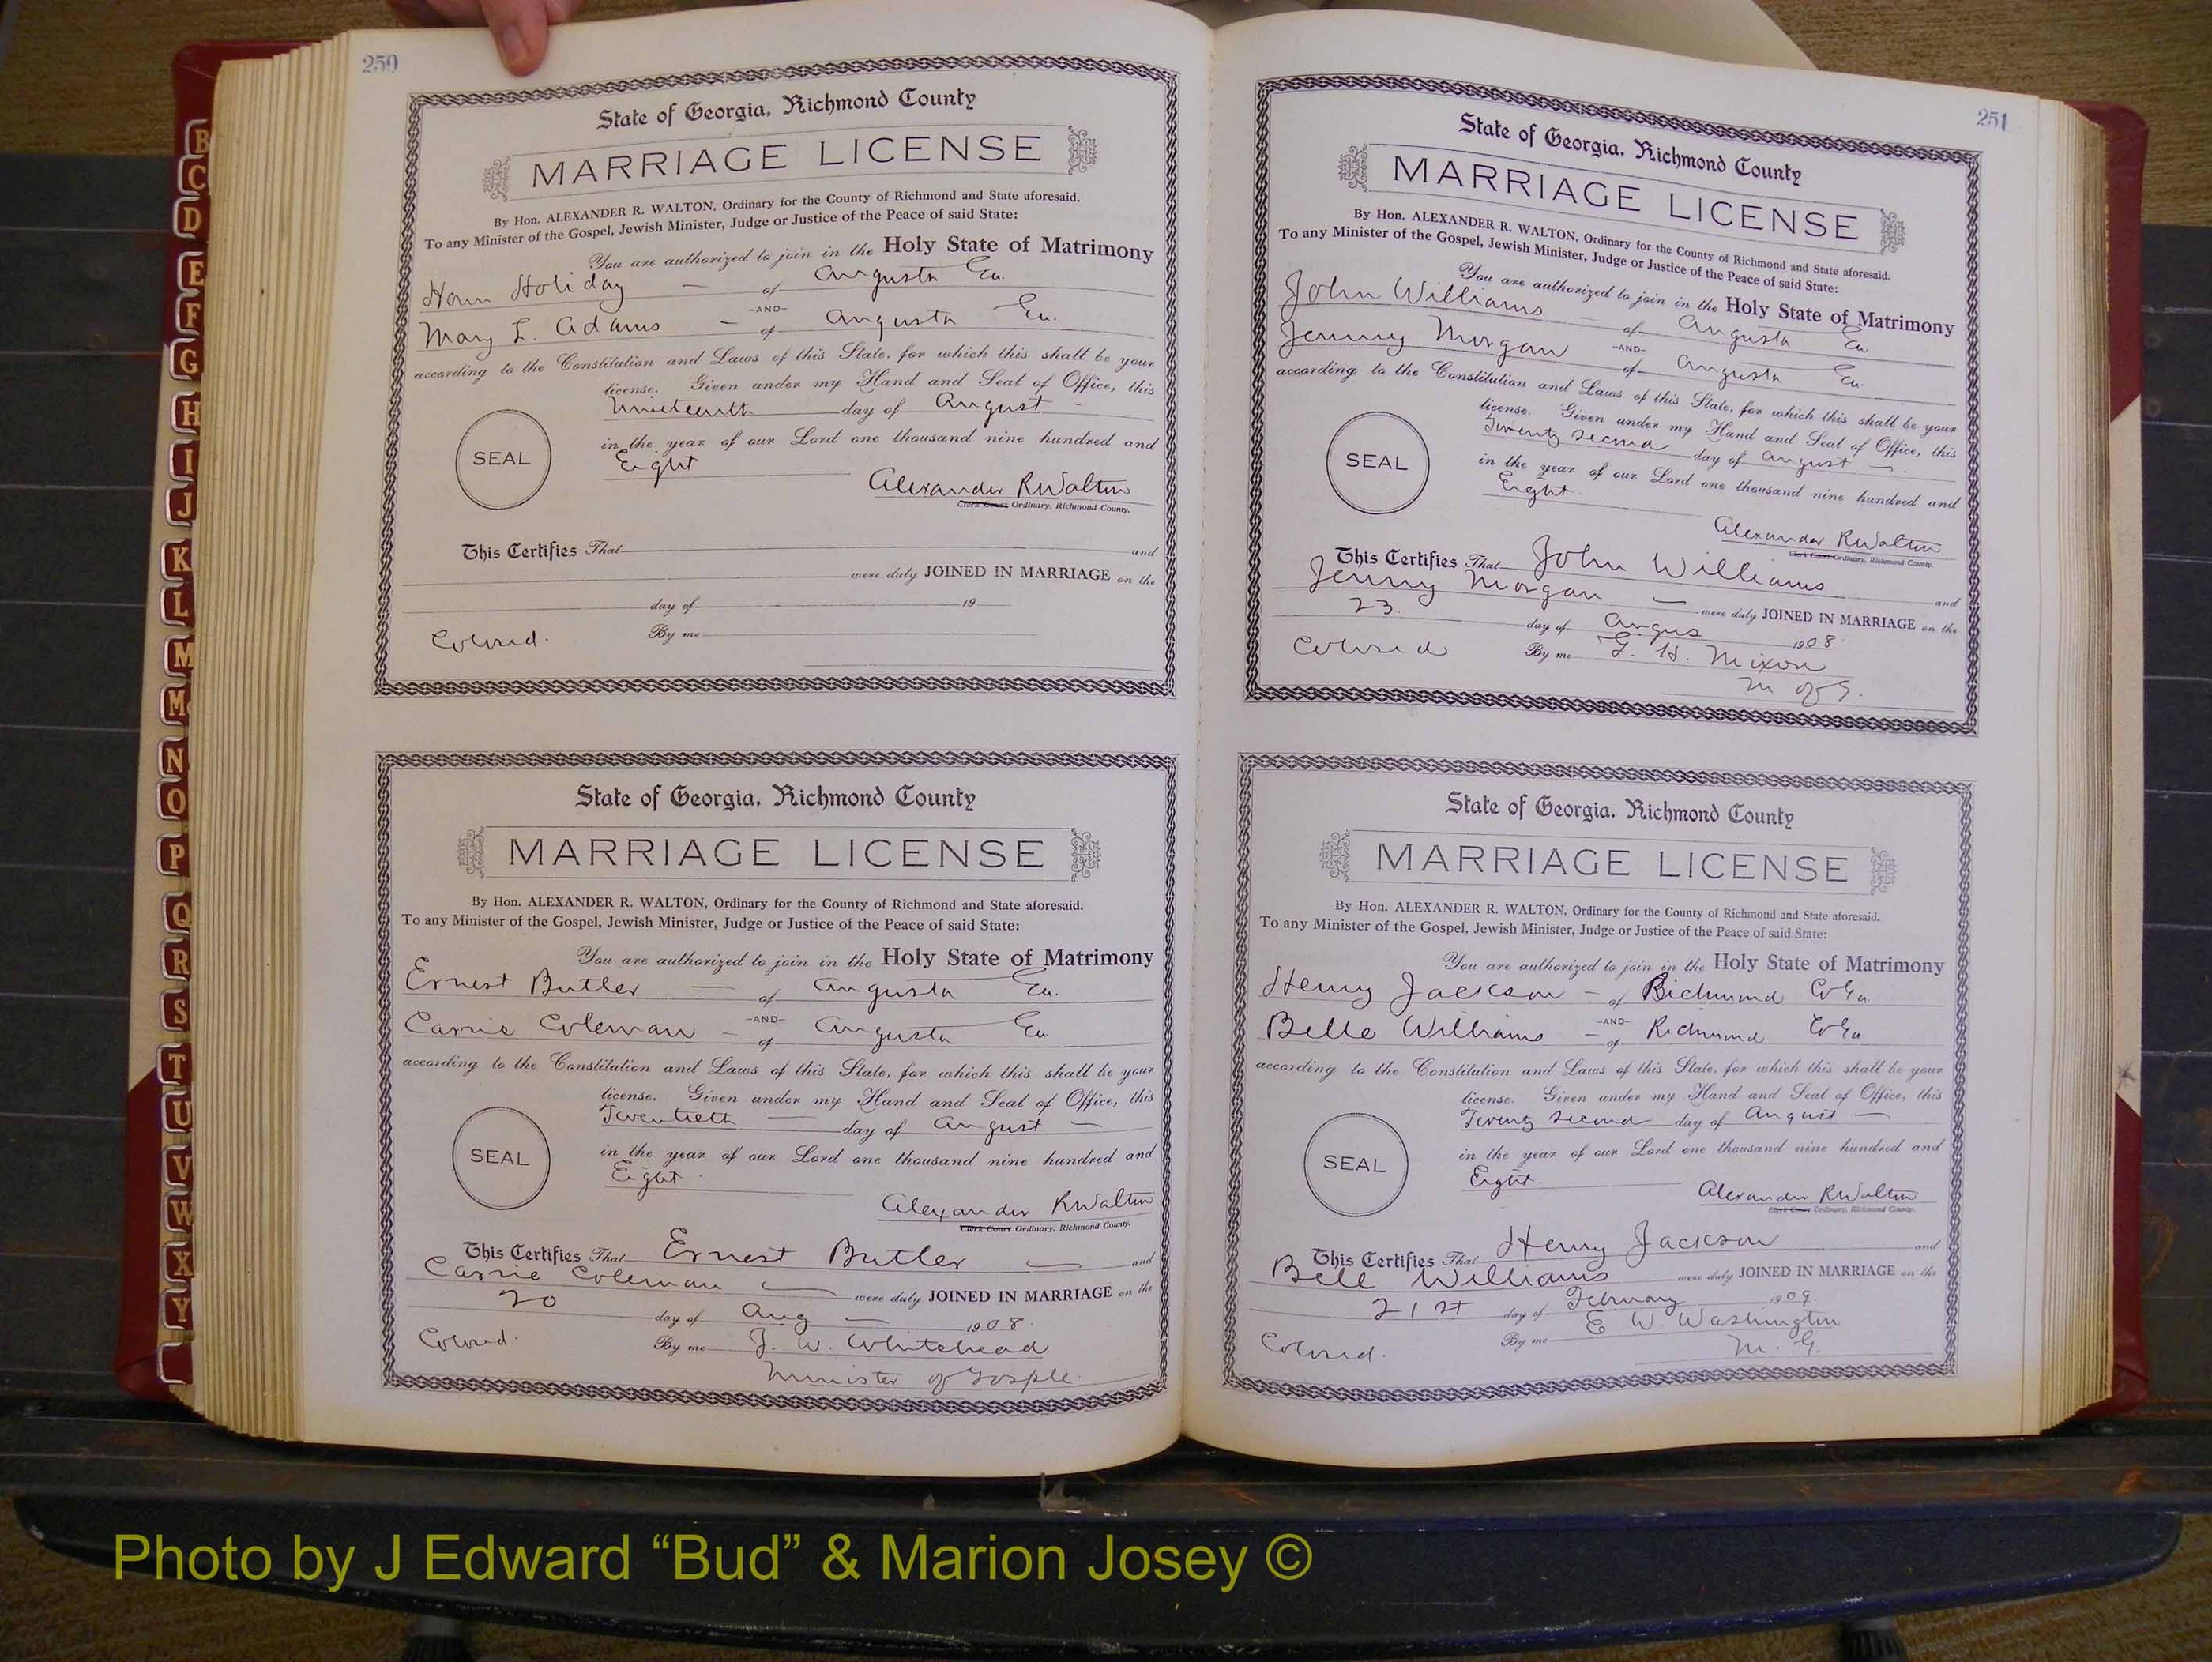 250
State of Georgia, Richmond County
MARRIAGE LICENSE
By Hon. ALEXANDER R. WALTON, Ordinary for the County of Richmond and State aforesaid.
To any Minister of the Gospel, Jewish Minister, Judge or Justice of the Peace of said State:
You are authorized to join in the Holy State of Matrimony
Holiday — of Augusta Ga.
-AND-
Mary L. Adams — of Augusta Ga.
according to the Constitution and Laws of this State, for which this shall be your
license. Given under my Hand and Seal of Office, this
Nineteenth day of August -
SEAL
in the year of our Lord one thousand nine hundred and
Eight
Alexander R Walton
Clerk Court Ordinary, Richmond County.
This Certifies That and
were duly JOINED IN MARRIAGE on the
day of 19
Colored. By me
State of Georgia, Richmond County
MARRIAGE LICENSE
By Hon. ALEXANDER R. WALTON, Ordinary for the County of Richmond and State aforesaid.
To any Minister of the Gospel, Jewish Minister, Judge or Justice of the Peace of said State:
You are authorized to join in the Holy State of Matrimony
Ernest Butler — of Augusta Ga.
-AND-
Carrie Coleman - of Augusta Ga
according to the Constitution and Laws of this State, for which this shall be your
license. Given under my Hand and Seal of Office, this
Twentieth day of August —
SEAL
in the year of our Lord one thousand nine hundred and
Eight.
Alexander R Walton
Clerk Court Ordinary, Richmond County.
This Certifies That Ernest Butler — and
Carrie Coleman — were duly JOINED IN MARRIAGE on the
20 day of Aug — 1908.
Colored. By me J. W. Whitehead
Minister of Gosple.
251
State of Georgia, Richmond County
MARRIAGE LICENSE
By Hon. ALEXANDER R. WALTON, Ordinary for the County of Richmond and State aforesaid.
To any Minister of the Gospel, Jewish Minister, Judge or Justice of the Peace of said State:
You are authorized to join in the Holy State of Matrimony
John Williams — of Augusta Ga
-AND-
Jenny Morgan of Augusta Ga.
according to the Constitution and Laws of this State, for which this shall be your
license. Given under my Hand and Seal of Office, this
Twenty second day of August —
SEAL
in the year of our Lord one thousand nine hundred and
Eight.
Alexander R Walton
Clerk Court Ordinary, Richmond County.
This Certifies That John Williams and
Jenny Morgan — were duly JOINED IN MARRIAGE on the
23. day of Augus 1908
Colored By me G. H. Mixon
M of G.
State of Georgia, Richmond County
MARRIAGE LICENSE
By Hon. ALEXANDER R. WALTON, Ordinary for the County of Richmond and State aforesaid.
To any Minister of the Gospel, Jewish Minister, Judge or Justice of the Peace of said State:
You are authorized to join in the Holy State of Matrimony
Henry Jackson - of Richmond Co Ga
-AND-
Belle Williams - of Richmond Co Ga
according to the Constitution and Laws of this State, for which this shall be your
license. Given under my Hand and Seal of Office, this
Twenty second day of August —
SEAL
in the year of our Lord one thousand nine hundred and
Eight.
Alexander R Walton
Clerk Court Ordinary, Richmond County.
This Certifies That Henry Jackson and
Bell Williams were duly JOINED IN MARRIAGE on the
21st day of February 1909.
Colored. By me E W. Washington
M. G.
B
C
D
E
F
G
H
I
J
K
L
M
M
N
O
P
Q
R
S
T
U
V
W
X
Y
Photo by J Edward “Bud” & Marion Josey ©